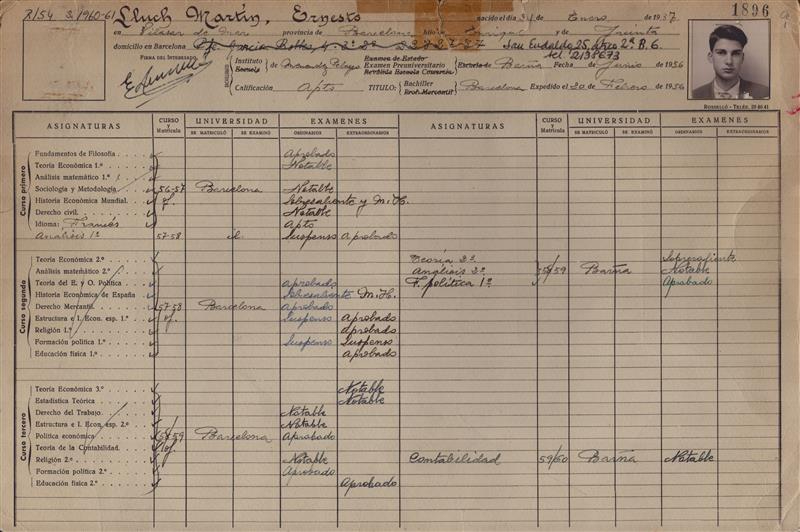 R/54 S/1960-61 Lluch Martín, Ernesto nacido el 31 de Enero de 1937 1896
en Vilasar de Mar provincia de Barcelona hijo de Enrique y de
domicilio en Barcelona 4. 2º 2ª San Eudaldo 25, Atco 2ª B. 6.
FIRMA DEL INTERESADO.
E. Lluch
Instituto
Escuela
de Menéndez Pelayo
Examen de Estado
Examen Preuniversitario
Reválida Escuela Comercio
Barña Fecha Junio de 1956
Calificación Apto TITULO: Bachiller
Prof. Mercantil
Barcelona Expedido el 20 de Febrero de 1956
ROSSELLÓ - TELÉF.
ASIGNATURAS CURSO y Matrícula UNIVERSIDAD EXÁMENES ASIGNATURAS CURSO y Matrícula UNIVERSIDAD EXÁMENES
SE MATRICULÓ SE EXAMINÓ ORDINARIOS EXTRAORDINARIOS SE MATRICULÓ SE EXAMINÓ ORDINARIOS EXTRAORDINARIOS
Curso primero
Fundamentos de Filosofía Aprobado
Teoría Económica 1.º Notable
Análisis matemático 1.º
Sociología y Metodología 56-57 Barcelona Notable
Historia Económica Mundial. of. Sobresaliente y M. H.
Derecho civil. Notable
Idioma: Francés Apto
Análisis 1º 57-58 id. Suspenso Aprobado
Curso segundo
Teoría Económica 2.º Teoría 2º Sobresaliente
Análisis matemático 2.º Análisis 2º 58/59 Barña Notable
Teoría del E. y O. Política Aprobado F. política 1º Aprobado
Historia Económica de España Sobresaliente M. H.
Derecho Mercantil. 57-58 Barcelona Aprobado
Estructura e I. Econ. esp. 1.º of. Suspenso Aprobado
Religión 1.º Aprobado
Formación política 1.º Suspenso Suspenso
Educación física 1.º Aprobado
Curso tercero
Teoría Económica 3.º Notable
Estadística Teórica Notable
Derecho del Trabajo Notable
Estructura e I. Econ. esp. 2.º Notable
Política económica 58/59 Barcelona Aprobado
Teoría de la Contabilidad. of.
Religión 2.º Notable Contabilidad 59/60 Barña Notable
Formación política 2.º Aprobado
Educación física 2.º Aprobado